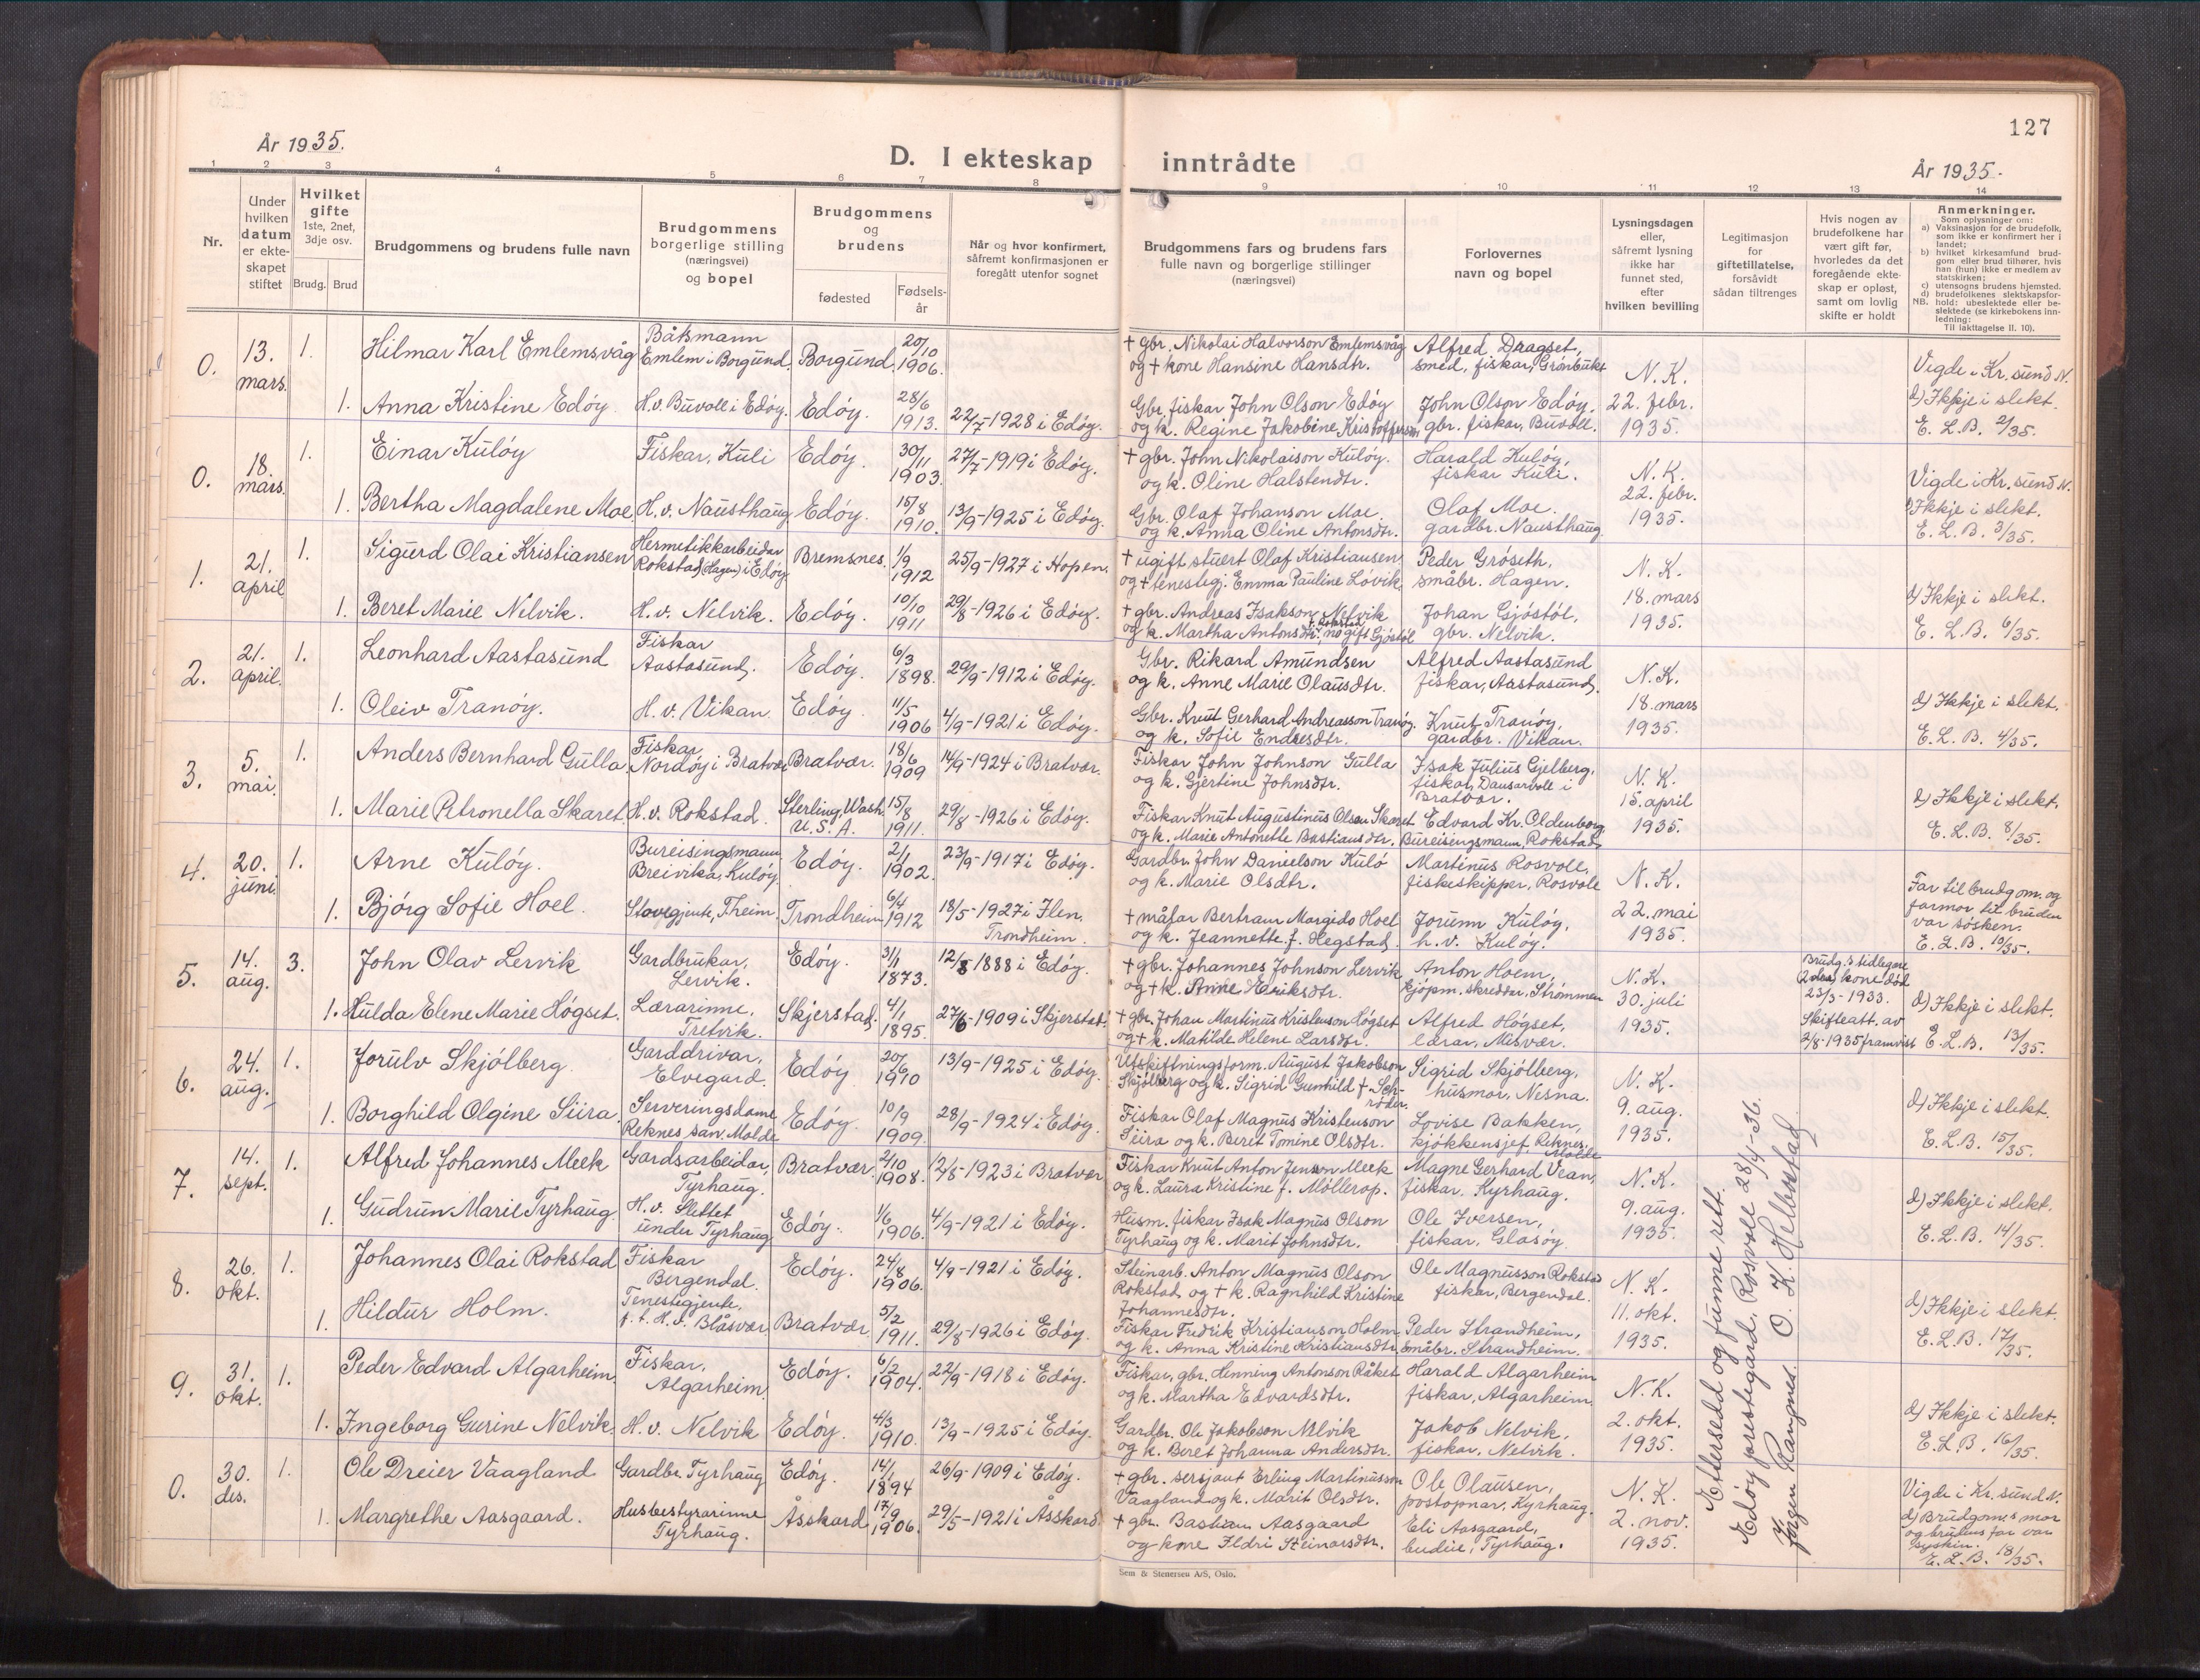 127
År 1935.
D. I ekteskap inntrådte
År 1935.
1 2 3 4 5 6 7 8 9 10 11 12 13 14
Nr.
Under hvilken datum er ekteskapet stiftet
Hvilket gifte 1ste, 2net, 3dje osv.
Brudg. Brud
Brudgommens og brudens fulle navn
Brudgommens borgerlige stilling (næringsvei) og bopel
Brudgommens og brudens
fødested
Fødselsår
Når og hvor konfirmert, såfremt konfirmasjonen er foregått utenfor sognet
Brudgommens fars og brudens fars fulle navn og borgerlige stillinger (næringsvei)
Forlovernes navn og bopel
Lysningsdagen eller, såfremt lysning ikke har funnet sted, efter hvilken bevilling
Legitimasjon for giftetillatelse, forsåvidt sådan tiltrenges
Hvis nogen av brudefolkene har vært gift før, hvorledes da det foregående ekteskap er opløst, samt om lovlig skifte er holdt
Anmerkninger.
Som oplysninger om:
a) Vaksinasjon for de brudefolk, som ikke er konfirmert her i landet;
b) hvilket kirkesamfund brudgom eller brud tilhører, hvis han (hun) ikke er medlem av statskirken;
c) utensogns brudens hjemsted.
d) brudefolkenes slektskapsforhold: ubeslektede eller beslektede (se kirkebokens innledning:
NB.
Til iakttagelse II. 10).
0. 13. mars. 1. Hilmar Karl Emlemsvåg Båtsmann Emlem i Borgund. Borgund. 20/10 1906. + gbr. Nikolai Halvorson Emlemsvåg og + kone Hansine Hansdtr. Alfred Dragset, smed, fiskar, Grønbukt N.K. 22. febr. 1935. Vigde i Kr.sund N.
1. Anna Kristine Edøy. H.v. Buvoll i Edøy. Edøy. 28/6 1913. 22/7-1928 i Edøy. Gbr. fiskar John Olson Edøy og k. Regine Jakobine Kristoffersdtr. John Olson Edøy, gbr. fiskar, Buvoll. d) Ikkje i slekt. E. L.B. 2/35.
0. 18. mars. 1. Einar Kuløy Fiskar, Kuli Edøy. 30/11 1903. 27/7-1919 i Edøy. + gbr. John Nikolaison Kuløy. og k. Oline Halstendtr. Harald Kuløy, fiskar Kuli. N.K. 22. febr. 1935. Vigde i Kr.sund N.
1. Bertha Magdalene Moe. H.v. Nausthaug Edøy. 15/8 1910. 13/9-1925 i Edøy. Gbr. Olaf Johanson Moe og k. Anna Oline Antonsdtr. Olaf Moe. gardbr. Nausthaug d) Ikkje i slekt. E. L.B. 3/35.
1. 21. april 1. Sigurd Olai Kristiansen Hermetikkarbeidar Rokstad (Hagen) i Edøy Bremsnes. 1/9 1912 25/9-1927 i Hopen. + ugift stuert Olaf Kristiansen og + tenestegj. Emma Pauline Løvik. Peder Grøseth, småbr. Hagen. N.K. 18. mars 1935.
1. Beret Marie Nelvik. H.v. Nelvik. Edøy. 10/10 1911 29/8-1926 i Edøy. + gbr. Andreas Isakson Nelvik og k. Martha Antonsdtr. f. Rokstad, no gift Gjøstøl Johan Gjøstøl, gbr. Nelvik. d) Ikkje i slekt. E. L.B. 6/35.
2. 21. april. 1. Leonhard Aastasund Fiskar Aastasund. Edøy. 6/3 1898. 29/9-1912 i Edøy. Gbr. Rikard Amundsen og k. Anne Marie Olausdtr. Alfred Aastasund fiskar, Aastasund. N.K. 18. mars 1935
1. Oleiv Tranøy. H.v. Vikan. Edøy. 11/5 1906 4/9-1921 i Edøy. Gbr. Knut Gerhard Andreasson Tranøy. og k. Sofie Endresdtr. Knut Tranøy, gardbr. Vikan. d) Ikkje i slekt. E. L.B. 4/35.
3. 5. mai. 1. Anders Bernhard Gulla. Fiskar, Nordøy i Bratvær Bratvær. 18/6 1909 14/9-1924 i Bratvær. Fiskar John Johnson Gulla og k. Gjertine Johnsdtr. Isak Julius Gjelberg, fiskar, Dausarvoll i Bratvær. N.K. 15. april 1935.
1. Marie Petronella Skaret. H.v. Rokstad. Sterling, Wash. U.S.A. 15/8 1911. 29/8-1926 i Edøy. Fiskar Knut Augustinus Olsen Skaret og k. Marie Antonette Bastiansdtr. Edvard Kr. Oldenborg Bureisingsmann, Rokstad d) Ikkje i slekt. E. L.B. 8/35.
4. 20. juni. 1. Arne Kuløy. Bureisingsmann Breivika, Kuløy Edøy. 2/1 1902. 23/9-1917 i Edøy. Gardbr. John Danielson Kulø og k. Marie Olsdtr. Martinus Rosvoll, fiskeskipper, Rosvoll N.K. 22. mai 1935.
1. Bjørg Sofie Hoel. Stovegjente, T.heim. Trondheim 6/4 1912 18/5-1927 i Ilen. Trondheim. + målar Bertram Margido Hoel og k. Jeannette f. Hegstad. Jorunn Kuløy, h.v. Kuløy. Far til brudgom. og farmor til bruden var søsken. E. L.B. 10/35.
5. 14. aug. 3. John Olav Lervik Gardbrukar, Lervik. Edøy. 3/1 1873. 12/8 1888 i Edøy. + gbr. Johannes Johnson Lervik og + k. Anne Eriksdtr. Anton Hoem, kjøpm. skreddar, Strømmen N.K. 30. juli 1935. Brudg.s tidlegare (2dre) kone død 23/3-1933. Skifteatt. av 2/8-1935 framvist
1. Hulda Elene Marie Høgset. Lærarinne, Tretvik. Skjerstad. 4/1 1895. 27/6-1909 i Skjerstad. + gbr. Johan Martinus Kristenson Høgset og + k. Matilde Helene Larsdtr. Alfred Høgset, lærar, Misvær. d) Ikkje i slekt. E. L.B. 13/35.
6. 24. aug. 1. Jorulv Skjølberg Garddrivar, Elvegard. Edøy 20/6 1910 13/9-1925 i Edøy. Utskiftningsform. August Jakobson Skjølberg og k. Sigrid Gunhild f. Schrøder. Sigrid Skjølberg, husmor, Nesna. N.K. 9. aug. 1935.
1. Borghild Olgine Siira. Serveringsdame Reknes san. Molde Edøy. 10/9 1909. 28/9-1924 i Edøy. Fiskar Olaf Magnus Kristenson Siira og k. Beret Tomine Olsdtr. Lovise Bakken, kjøkkensjef, Reknes, Molde d) Ikkje i slekt. E. L.B. 15/35.
7. 14. sept. 1. Alfred Johannes Meek Gardsarbeidar, Tyrhaug. Bratvær 2/10 1908. 12/8-1923 i Bratvær Fiskar Knut Anton Jenson Meek og k. Laura Kristine f. Møllerop. Magne Gerhard Vean, fiskar. Kyrhaug. N.K. 9. aug. 1935.
1. Gudrun Marie Tyrhaug. H.v. Slettet under Tyrhaug Edøy. 1/6 1906. 4/9-1921 i Edøy. Husm. fiskar Isak Magnus Olson Tyrhaug og k. Marit Johnsdtr. Ole Iversen, fiskar, Glasøy. d) Ikkje i slekt. E. L.B. 14/35.
8. 26. okt. 1. Johannes Olai Rokstad Fiskar Bergendal. Edøy. 24/8 1906. 4/9-1921 i Edøy. Steinarb. Anton Magnus Olson Rokstad og + k. Ragnhild Kristine Johannesdtr. Ole Magnusson Rokstad fiskar, Bergendal. N.K. 11. okt. 1935.
1. Hildur Holm. Tenestegjente, f.t. H.v. Blåsvær. Bratvær 5/2 1911. 29/8-1926 i Edøy. Fiskar Fredrik Kristianson Holm og k. Anna Kristine Kristiansdtr. Peder Strandheim, småbr. Strandheim. d) Ikkje i slekt. E. L.B. 17/35.
9. 31. okt. 1. Peder Edvard Algarheim. Fiskar, Algarheim. Edøy. 6/2 1904. 22/9-1918 i Edøy. Fiskar, gbr. Henning Antonson Råket og k. Martha Edvardsdtr. Harald Algarheim fiskar, Algarheim. N.K. 2. okt. 1935.
1. Ingeborg Gurine Nelvik. H.v. Nelvik Edøy. 4/3 1910. 13/9-1925 i Edøy. Gardbr. Ole Jakobson Nelvik og k. Beret Johanna Andersdtr. Jakob Nelvik, fiskar, Nelvik. d) Ikkje i slekt. E. L.B. 16/35.
0. 30. des. 1. Ole Dreier Vaagland Gardbr. Tyrhaug Edøy. 14/1 1894 26/9-1909 i Edøy. + gbr. sersjant Erling Martinusson Vaagland og k. Marit Olsdtr. Ole Olausen, postopnar, Kyrhaug. N.K. 2. nov. 1935. Vigde i Kr.sund N.
1. Margrethe Aasgaard. Husbestyrarinne Tyrhaug. Åsskard 17/9 1906. 29/5-1921 i Åsskard. + gbr. Bastian Aasgaard og kone Ildri Steinarsdtr. Eli Aasgaard, budeie, Tyrhaug. d) Brudgom.s mor og brudens far var syskin. E. L.B. 18/35.
Ettersedd og funne rett.
Edøy prestegard, Rosvoll 28/4-36.
Jørgen Rangnes. O. K. Helberstad
Sem & Stenersen A/S, Oslo.